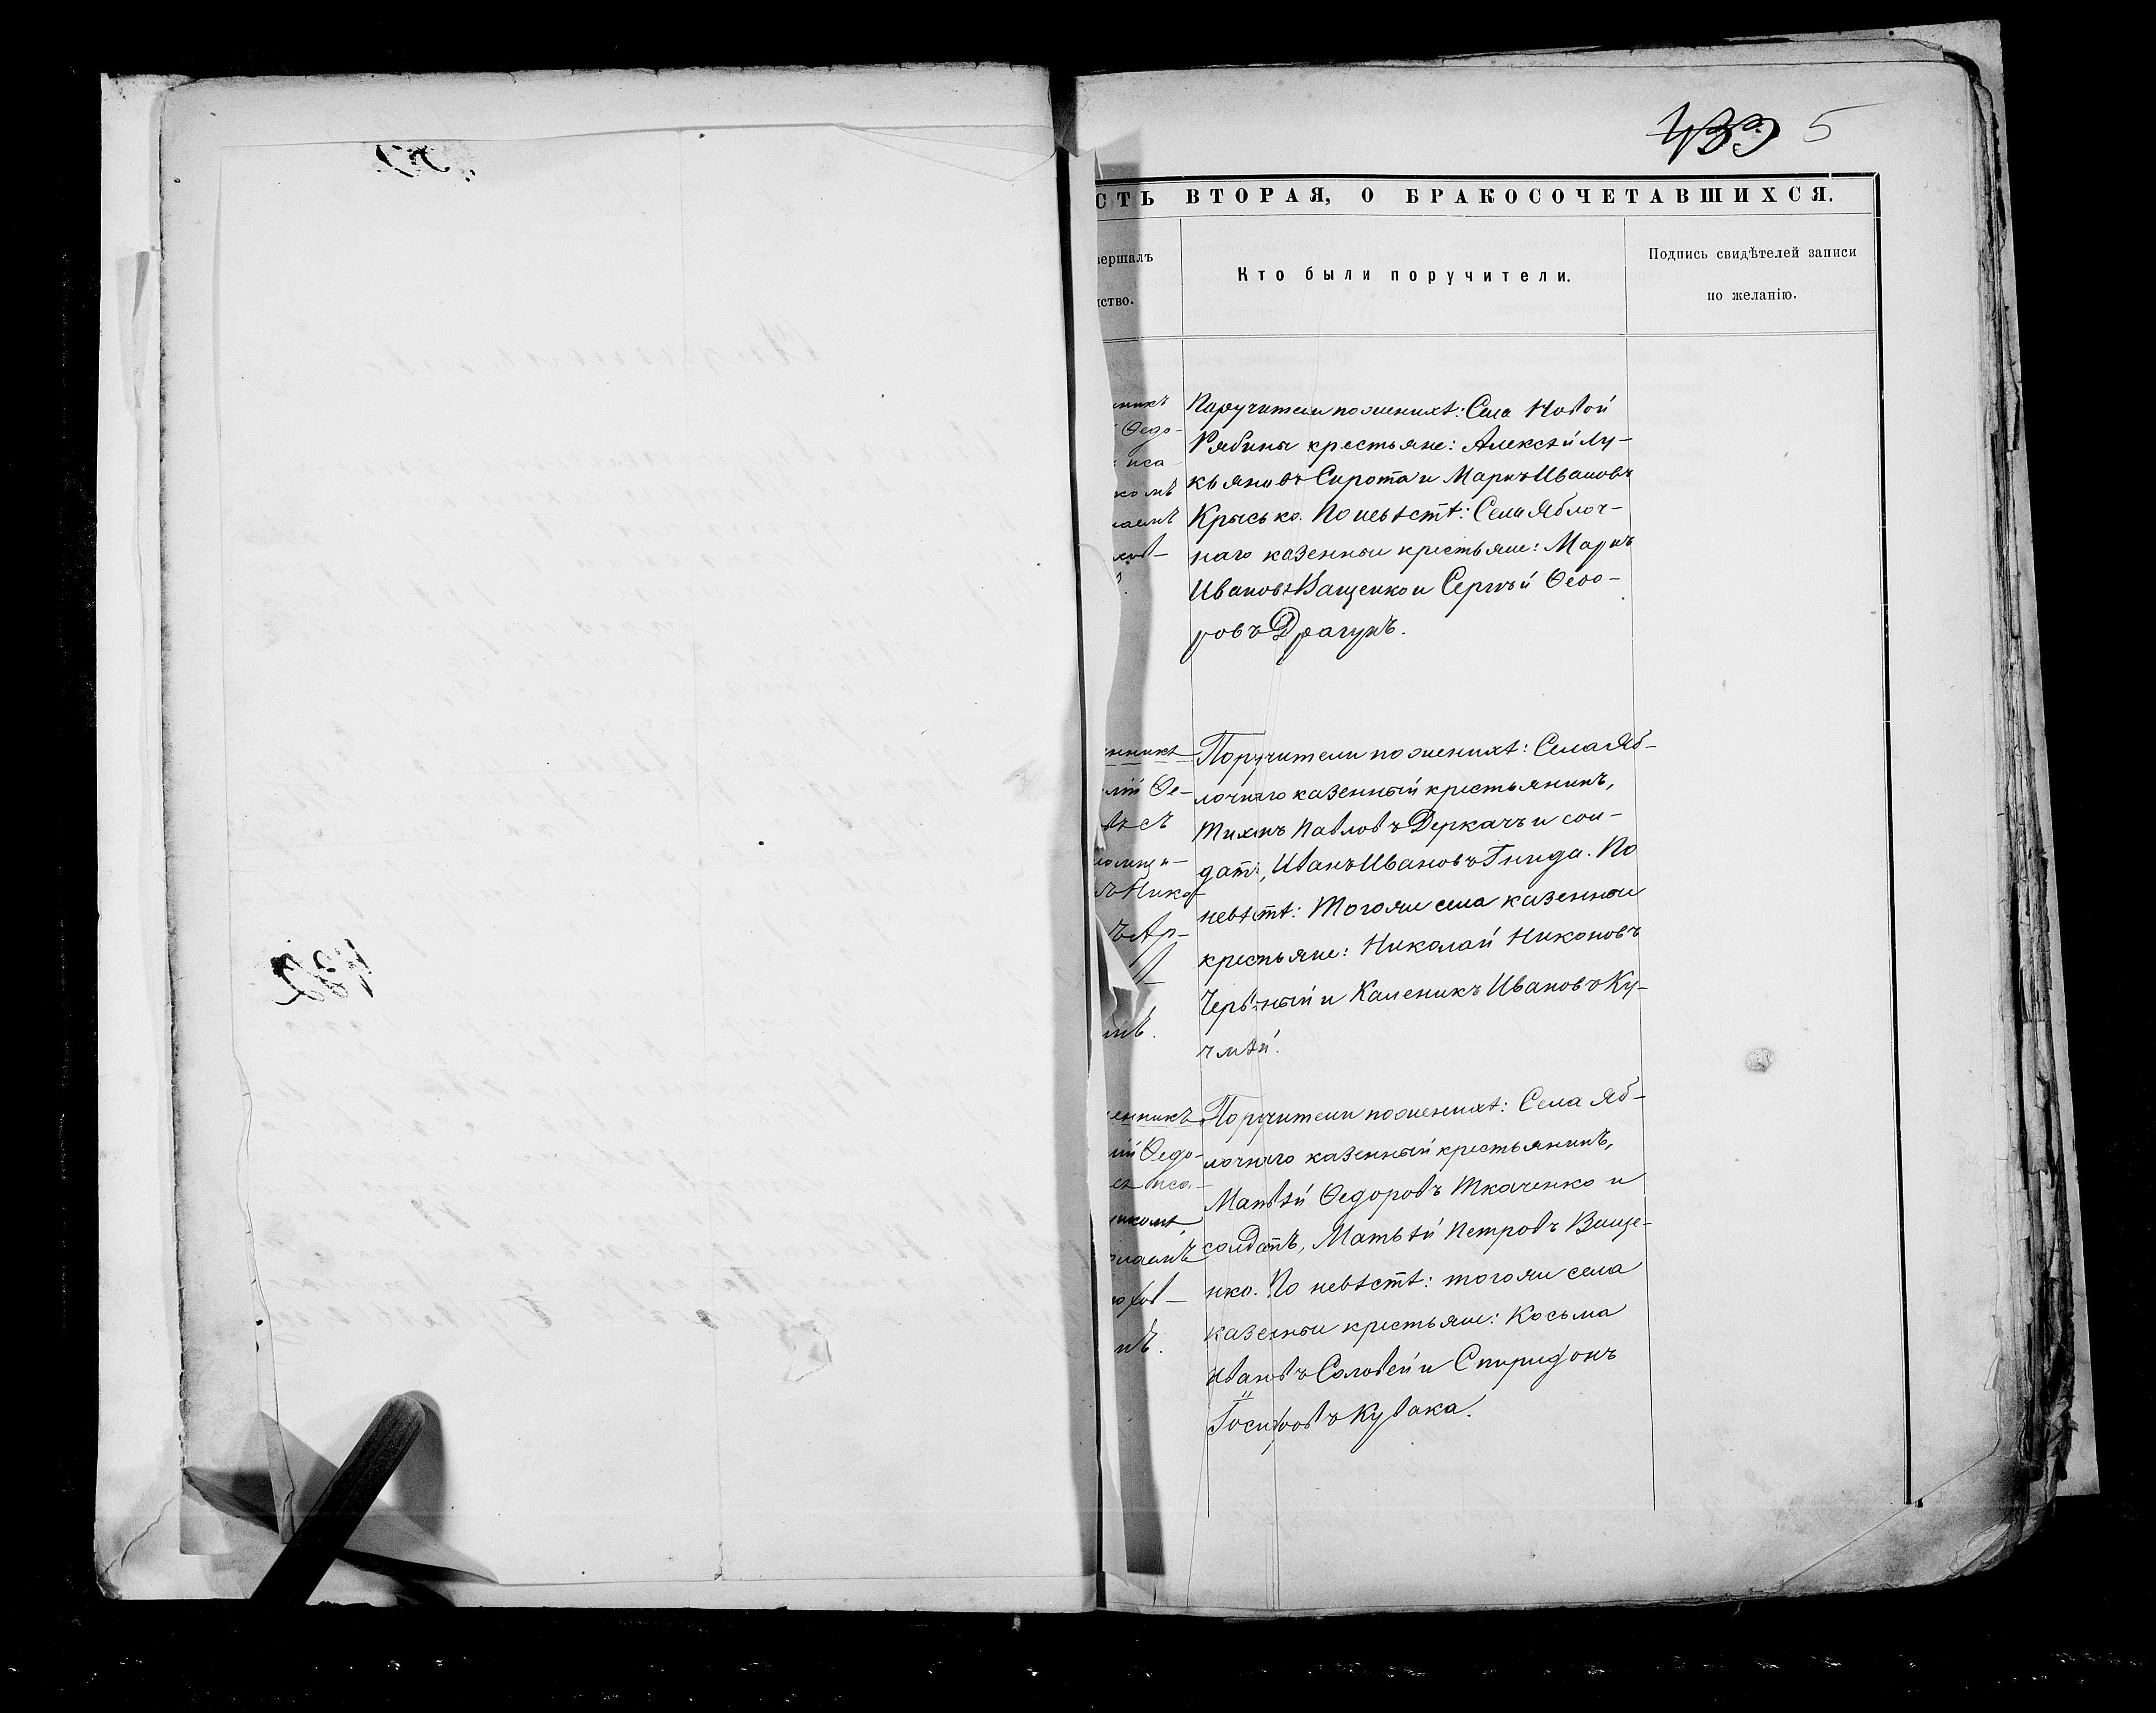 433 5
СТЬ ВТОРАЯ, О БРАКОСОЧЕТАВШИХСЯ.
вершалъ
нство.
Кто были поручители.
Подпись свидѣтелей записи
по желанію.
Поручители по женихѣ: Села Новой
Рябины крестьяне: Алексѣй Лу-
кьяновъ Сирота и Маркъ Ивановъ
Крысько. По невѣстѣ: Села Яблоч-
наго казенные крестьяне: Маркъ
Ивановъ Ващенко и Сергѣй Ѳедо-
ровъ Драгунъ.
Поручители по женихѣ: Села Яб-
лочнаго казенный крестьянинъ,
Тихонъ Павловъ Деркачъ и сол-
датъ, Иванъ Ивановъ Гнида. По
невѣстѣ: Тогоже села казенные
крестьяне: Николай Никоновъ
и Каленикъ Ивановъ Ку-
Поручители по женихѣ: Села Яб-
лочнаго казенный крестьянинъ,
Матвѣй Ѳедоровъ Ткаченко и
солдатъ, Матвѣй Петровъ Ваще-
нко. По невѣстѣ: тогоже села
казенные крестьяне: Косьма
Ивановъ Соловей и Спиридонъ
Іосифовъ Кувака.
енникъ
ій Ѳедо-